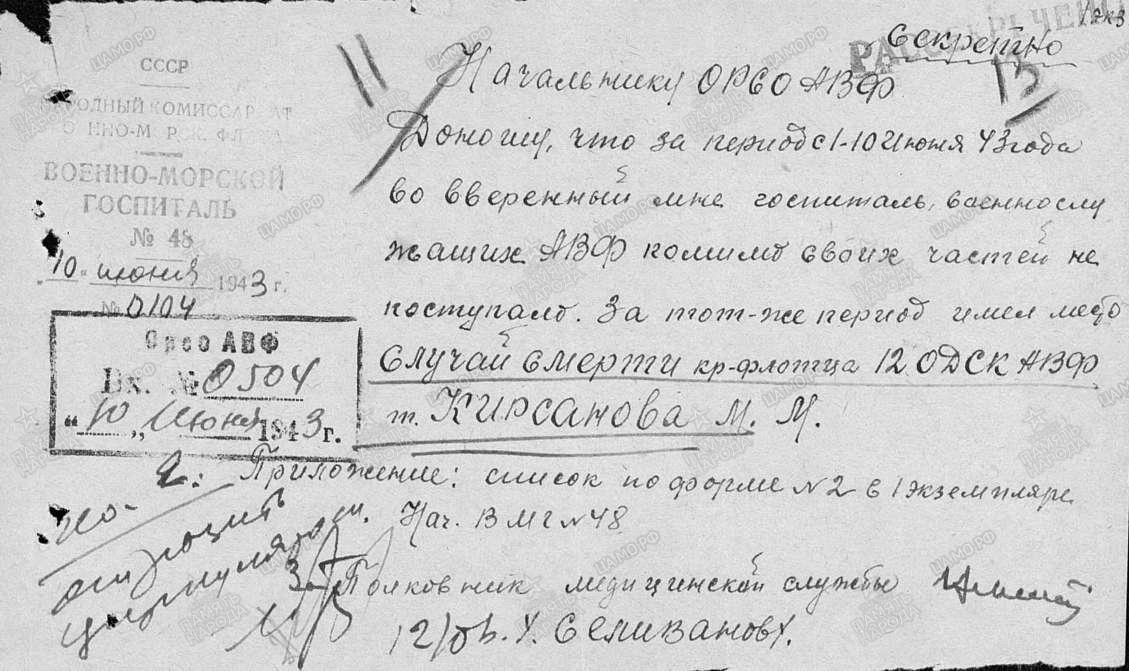 РАССЕКРЕЧЕНО
1экз
Секретно
СССР
НАРОДНЫЙ КОМИССАРИАТ
ВОЕННО-МОРСК. ФЛОТА
ВОЕННО-МОРСКОЙ
ГОСПИТАЛЬ
№ 48
"10" июня 1943 г.
№ 0104
11
13
Начальнику ОРСО АВФ
Доношу, что за период с 1-10 июня 43 года
во вверенный мне госпиталь, военнослу
жащих АВФ помимо своих частей не
поступало. За тот-же период имел место
случай смерти кр-флотца 12 ОДСК АВФ
т. Кирсанова М. М.
Орсо АВФ
Вх. № 0504
"10" Июня 1943 г.
Приложение: список по форме N2 в 1 экземпляре
Нач. ВМГ N48
Полковник медицинской службы
12/